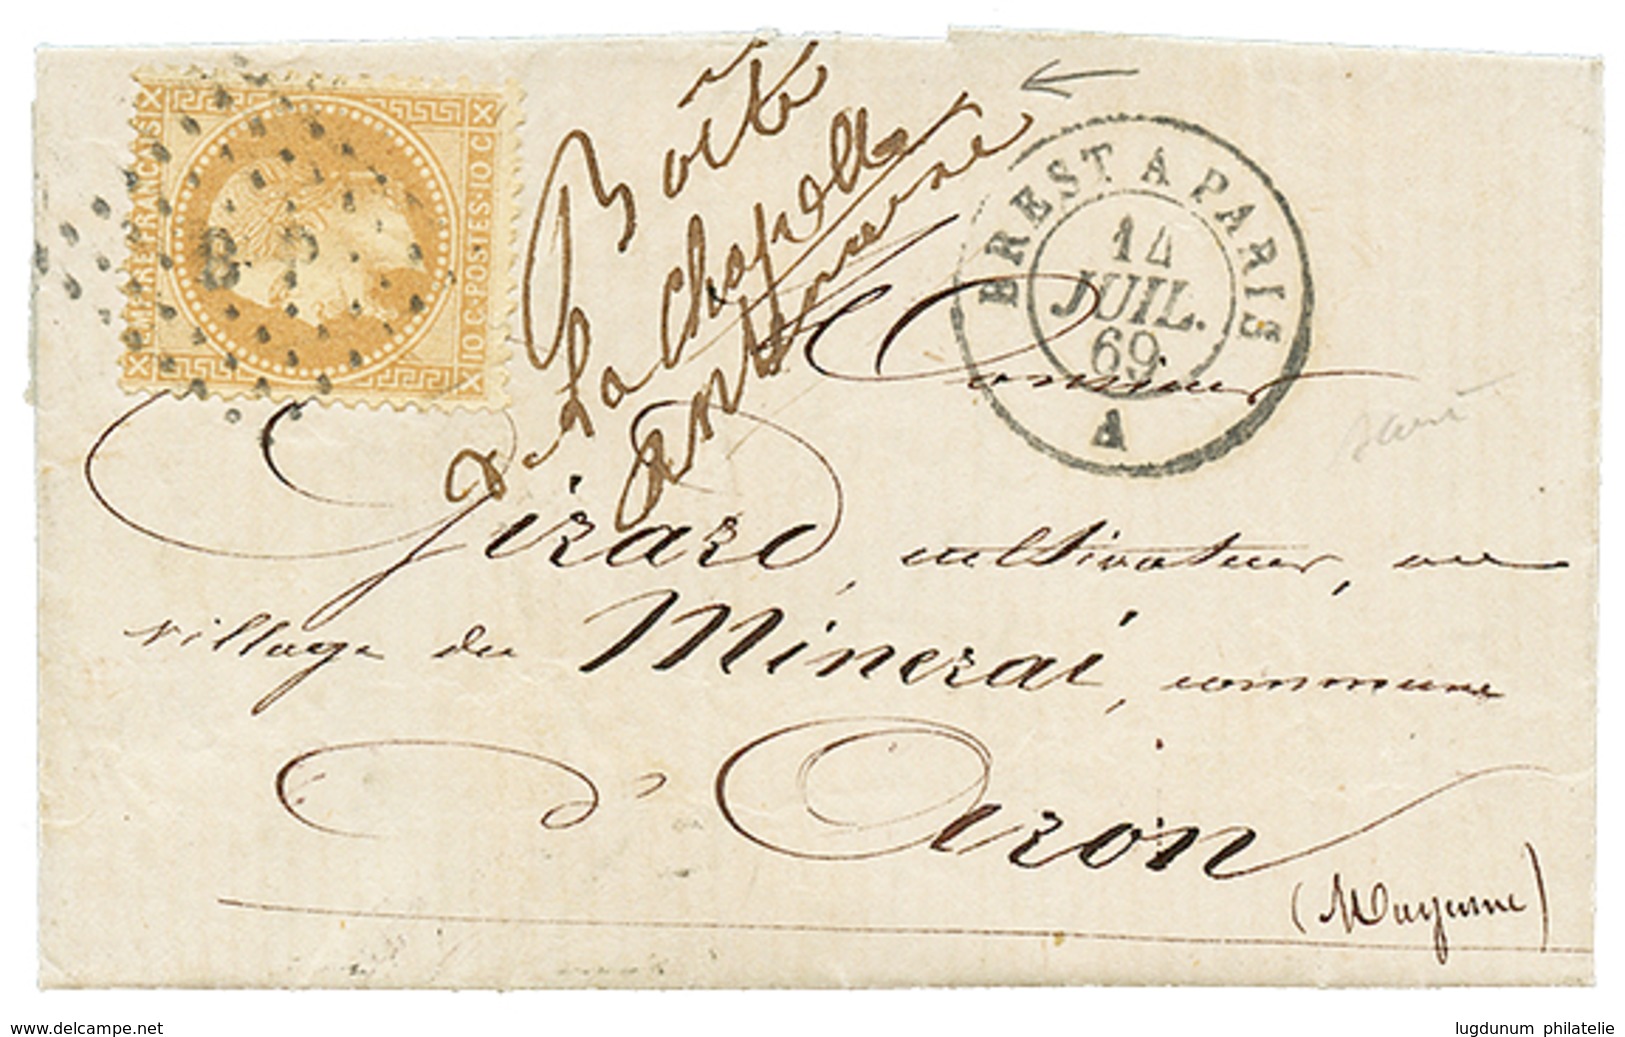 EMPIRE FRANCAIS
10 C. POSTES. 10 C
B P
Boîte
de La Chapelle
anthenaise
BREST A PARIS
14
JUIL.
69
A
Monsieur
Girard, cultivateur, au
village du Minerai, commune
d'Aron
(Mayenne)
www.delcampe.net
lugdunum philatelie